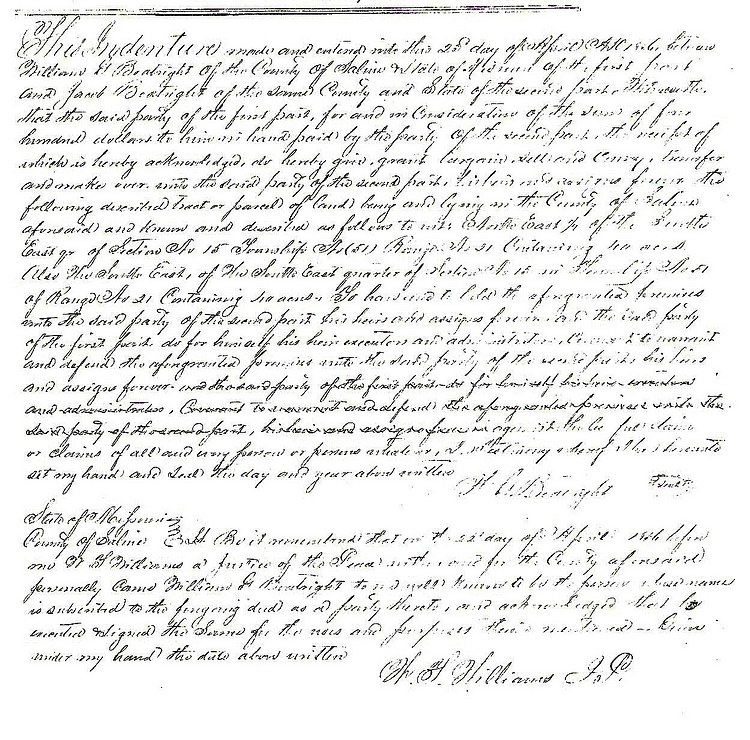 This Indenture made and entered into this 22d day of April AD 1846, between
William H Boatright of the County of Saline & State of Missouri of the first part
and Jacob Boatright of the same County and State of the second part. Witnesseth,
that the said party of the first part, for and in Consideration of the sum of
hundred dollars to him in hand paid by the party of the second part, the receipt of
which is hereby acknowledged, do hereby give, grant bargain, sell and Convey, transfer
and make over unto the said party of the second part, his heirs and assigns forever the
following described tract or parcel of land being and lying in the County of Saline
aforesaid and known and described as follows to wit: South East of the South
East qr of Section No 15 Township No (51) Range No 21 Containing acres
Also The South East, of The South East quarter of Section No 15 in Township No 51
of Range No 21 Containing 40 acres. To have and to hold the aforegranted premises
unto the said party of the second part his heirs and assigns forever, and the said party
of the first part do for himself his heirs executors and administrators Covenant to warrant
and defend the aforegranted premises unto the said party of the second part his heirs
and assigns forever and the said party of the first part do for himself his heirs executors
and administrators, Covenant to warrant and defend the aforegranted premises unto the
said party of the second part, his heirs and assigns forever against the lawful claim
or claims of all and every person or persons whatever, In testimony whereof I have hereunto
set my hand and Seal the day and year above written
W H Boatright
State of Missouri
County of Saline Sct Be it remembered that on the 22d day of April 1846 before
me W H Williams a Justice of the Peace within and for the County aforesaid
personally Came William H Boatright to me well known to be the person whose name
is subscribed to the foregoing deed as a party thereto, and acknowledged that he
executed & signed the Same for the uses and purposes therein mentioned Given
under my hand the date above written
W. H. Williams J. P.